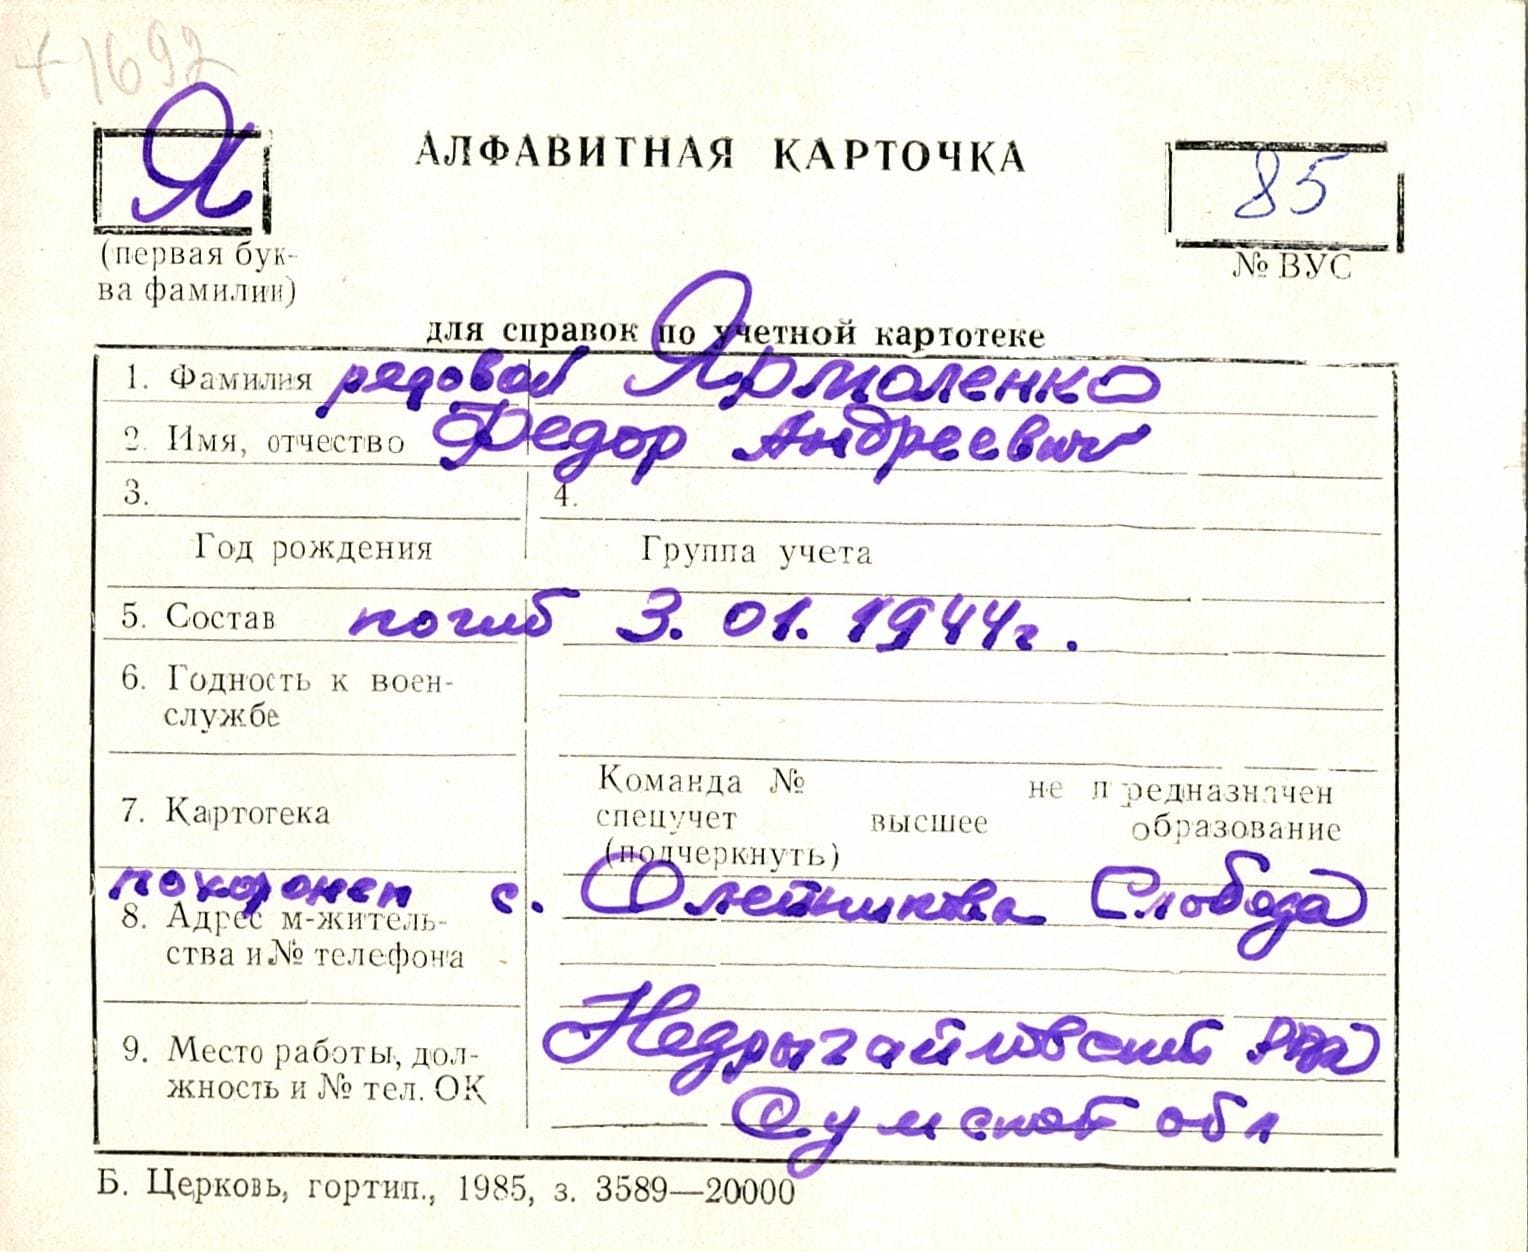 +1692
Я
АЛФАВИТНАЯ КАРТОЧКА
85
(первая бук-
ва фамилии)
№ ВУС
для справок по учетной картотеке
1. Фамилия рядовой Ярмоленко
2. Имя, отчество Федор Андреевич
3. 4.
Год рождения Группа учета
5. Состав погиб 3.01.1944г.
6. Годность к воен-
службе
Команда № не предназначен
7. Картотека спецучет высшее образование
(подчеркнуть)
похоронен с. Олешникова Слобода
8. Адрес м-житель-
ства и № телефона
Недрыгайловский р-на
9. Место работы, дол-
жность и № тел. ОК
Сумской обл
Б. Церковь, гортип., 1985, з. 3589—20000